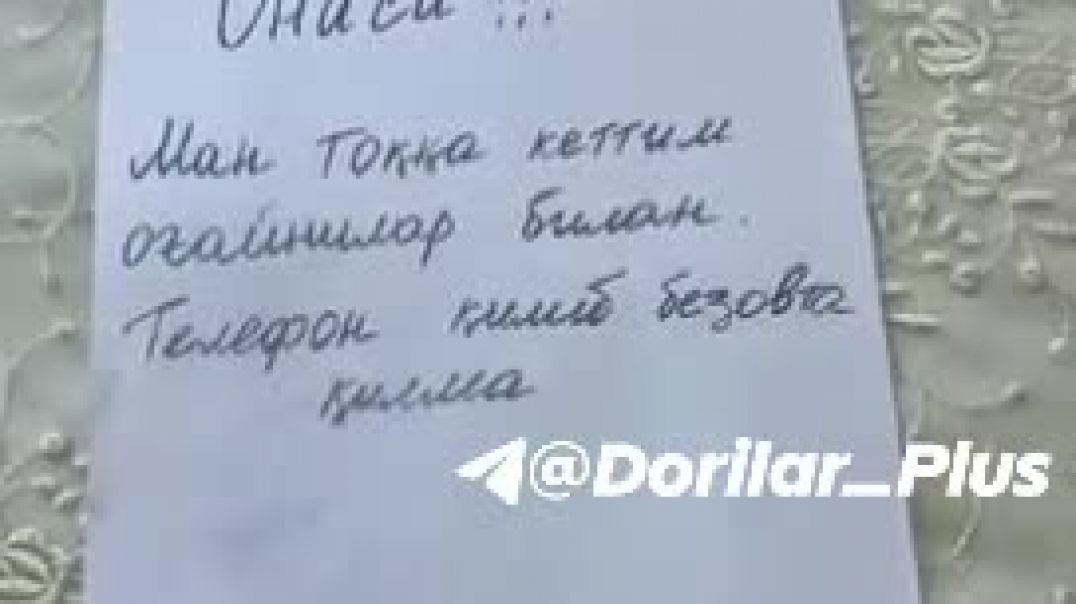 Онаси !!!
Ман тоққа кеттим
оғайнилар билан.
Телефон қилиб безовта
қилма
@Dorilar_Plus